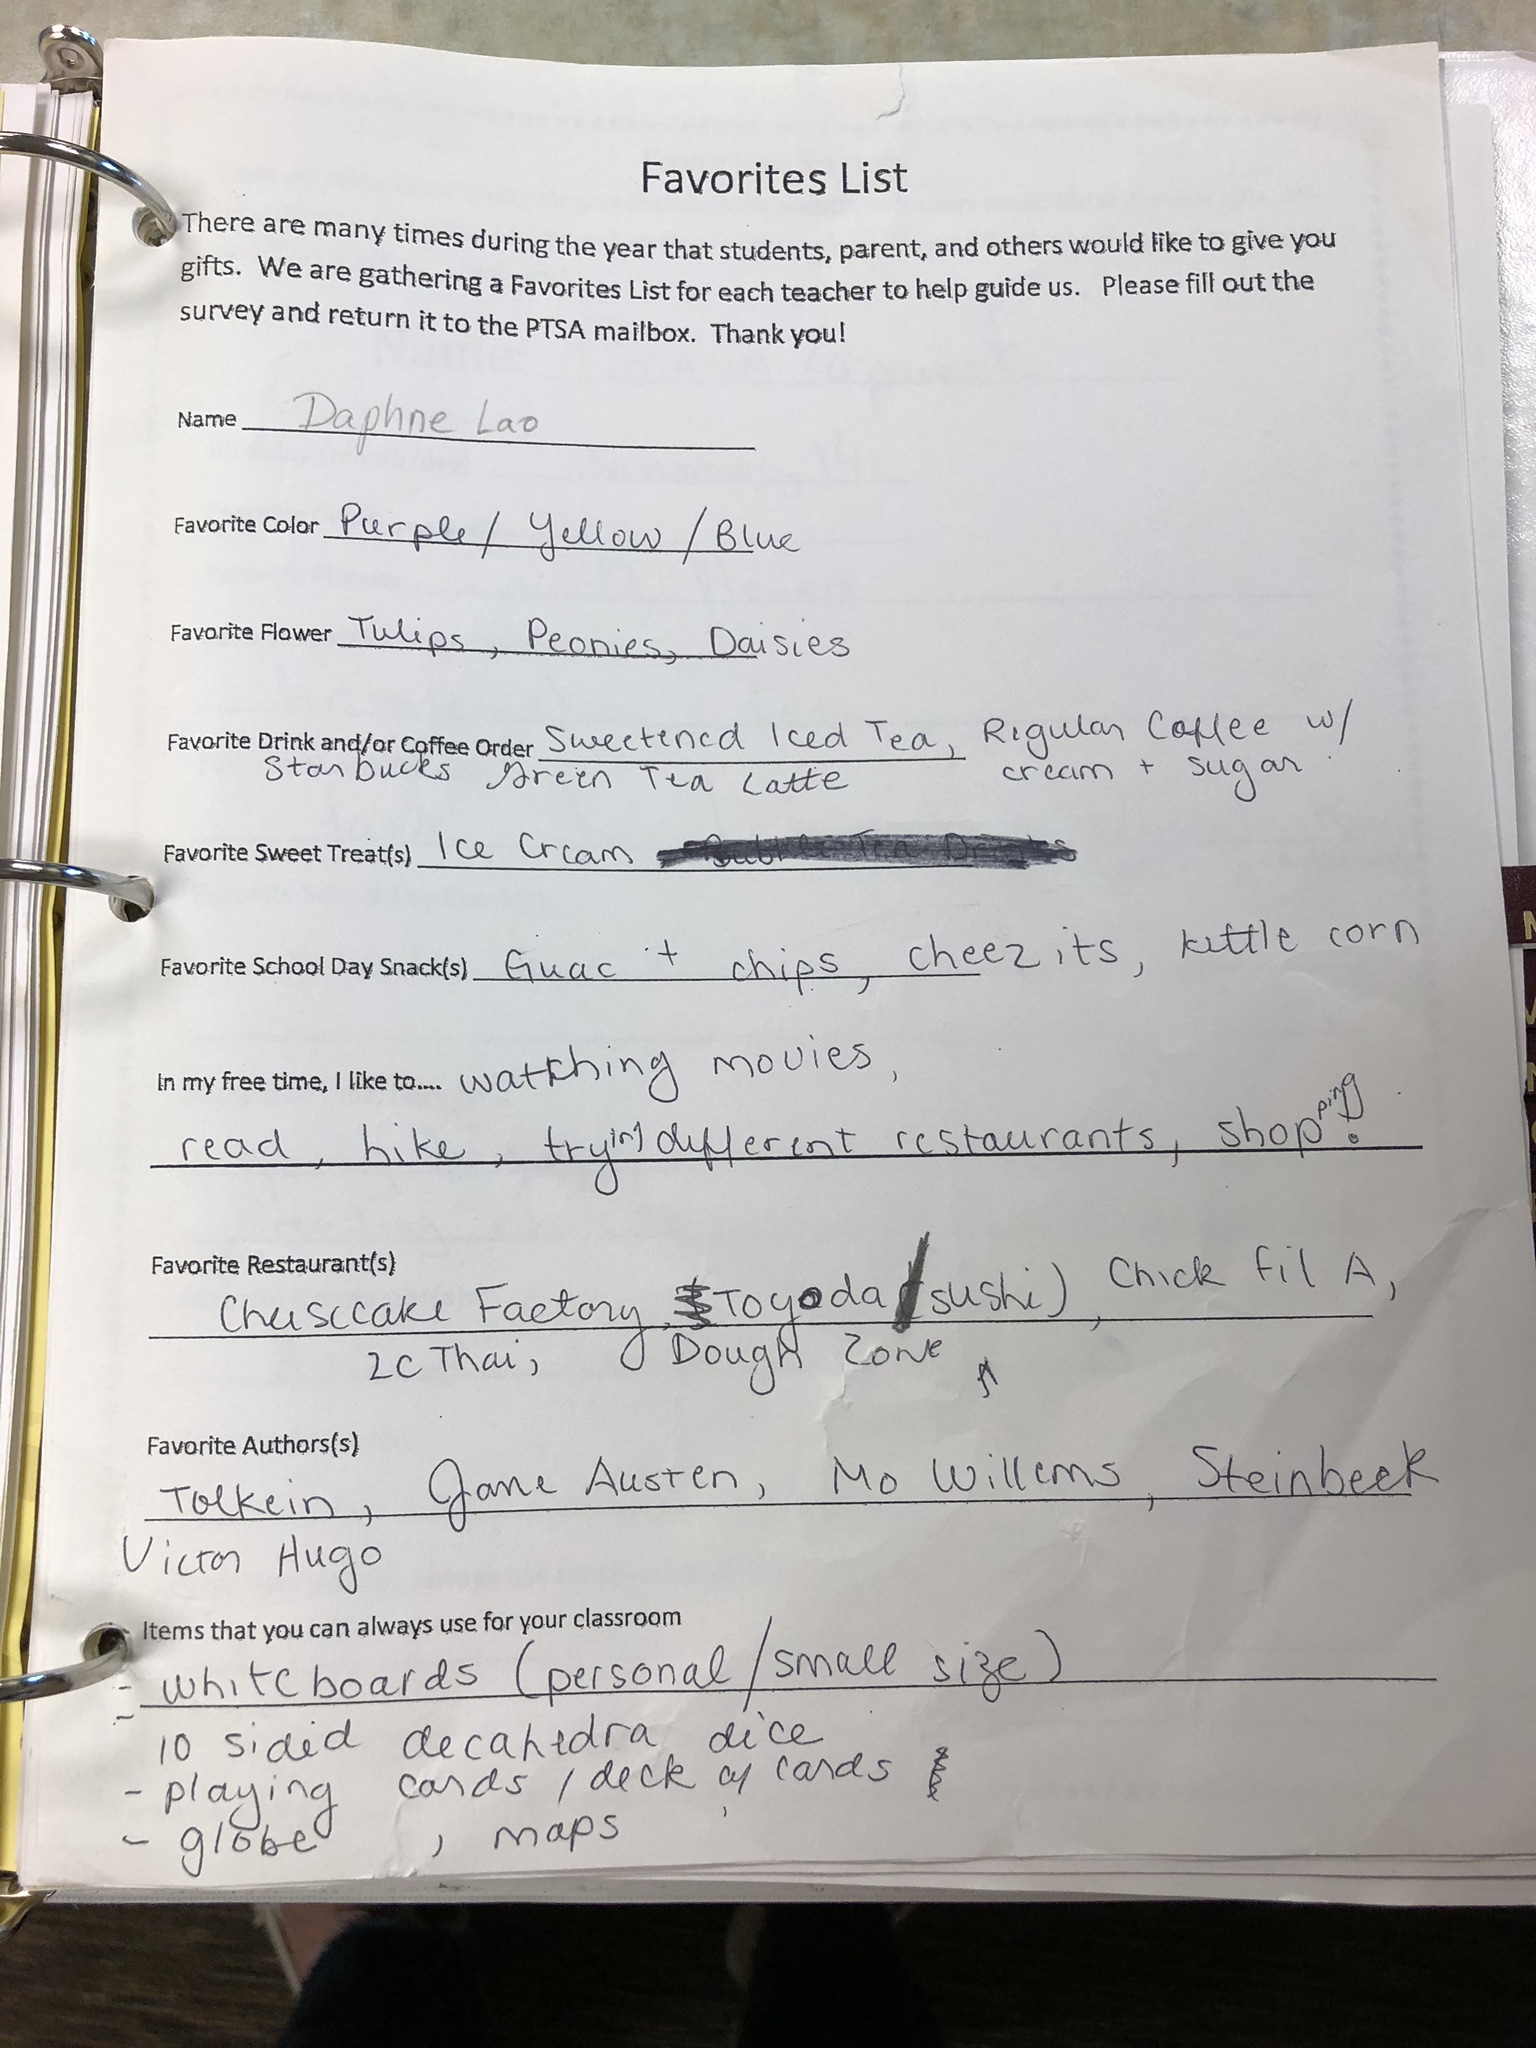 Favorites List
There are many times during the year that students, parent, and others would like to give you
gifts. We are gathering a Favorites List for each teacher to help guide us. Please fill out the
survey and return it to the PTSA mailbox. Thank you!
Name Daphne Lao
Favorite Color Purple / Yellow / Blue
Favorite Flower Tulips, Peonies, Daisies
Favorite Drink and/or Coffee Order Sweetened Iced Tea, Regular Coffee w/
Starbucks Green Tea Latte cream + sugar
Favorite Sweet Treat(s) Ice Cream
Favorite School Day Snack(s) Guac + chips, cheez its, kettle corn
In my free time, I like to.... watching movies,
read, hike, trying different restaurants, shopping!
Favorite Restaurant(s)
Cheesecake Factory, Toyoda (sushi), Chick fil A,
2C Thai, Dough Zone
Favorite Authors(s)
Tolkein, Jane Austen, Mo Willems, Steinbeck
Victor Hugo
Items that you can always use for your classroom
- whiteboards (personal/small size)
- 10 sided decahedra dice
- playing cards / deck of cards
- globe, maps